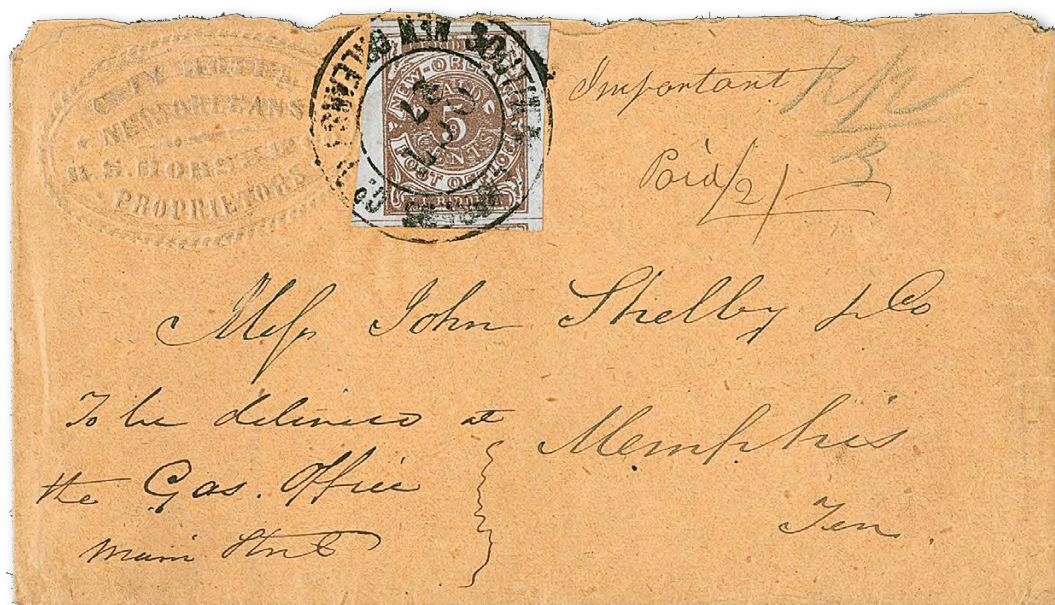 CITY HOTEL
NEW ORLEANS
PROPRIETORS
NEW-ORLEANS
PAID
5
CENTS
POST OFFICE
Important
Paid/2/
Mess John Shelby & Co
To be delivered at
the Gas. Office
Main Street
Memphis
Ten